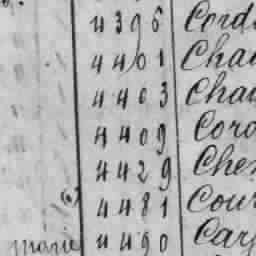 4396 Cord
4401 Chau
4403 Chau
4409 Coro
4429 Che
(6) 4481 Cour
marie 4490 Car